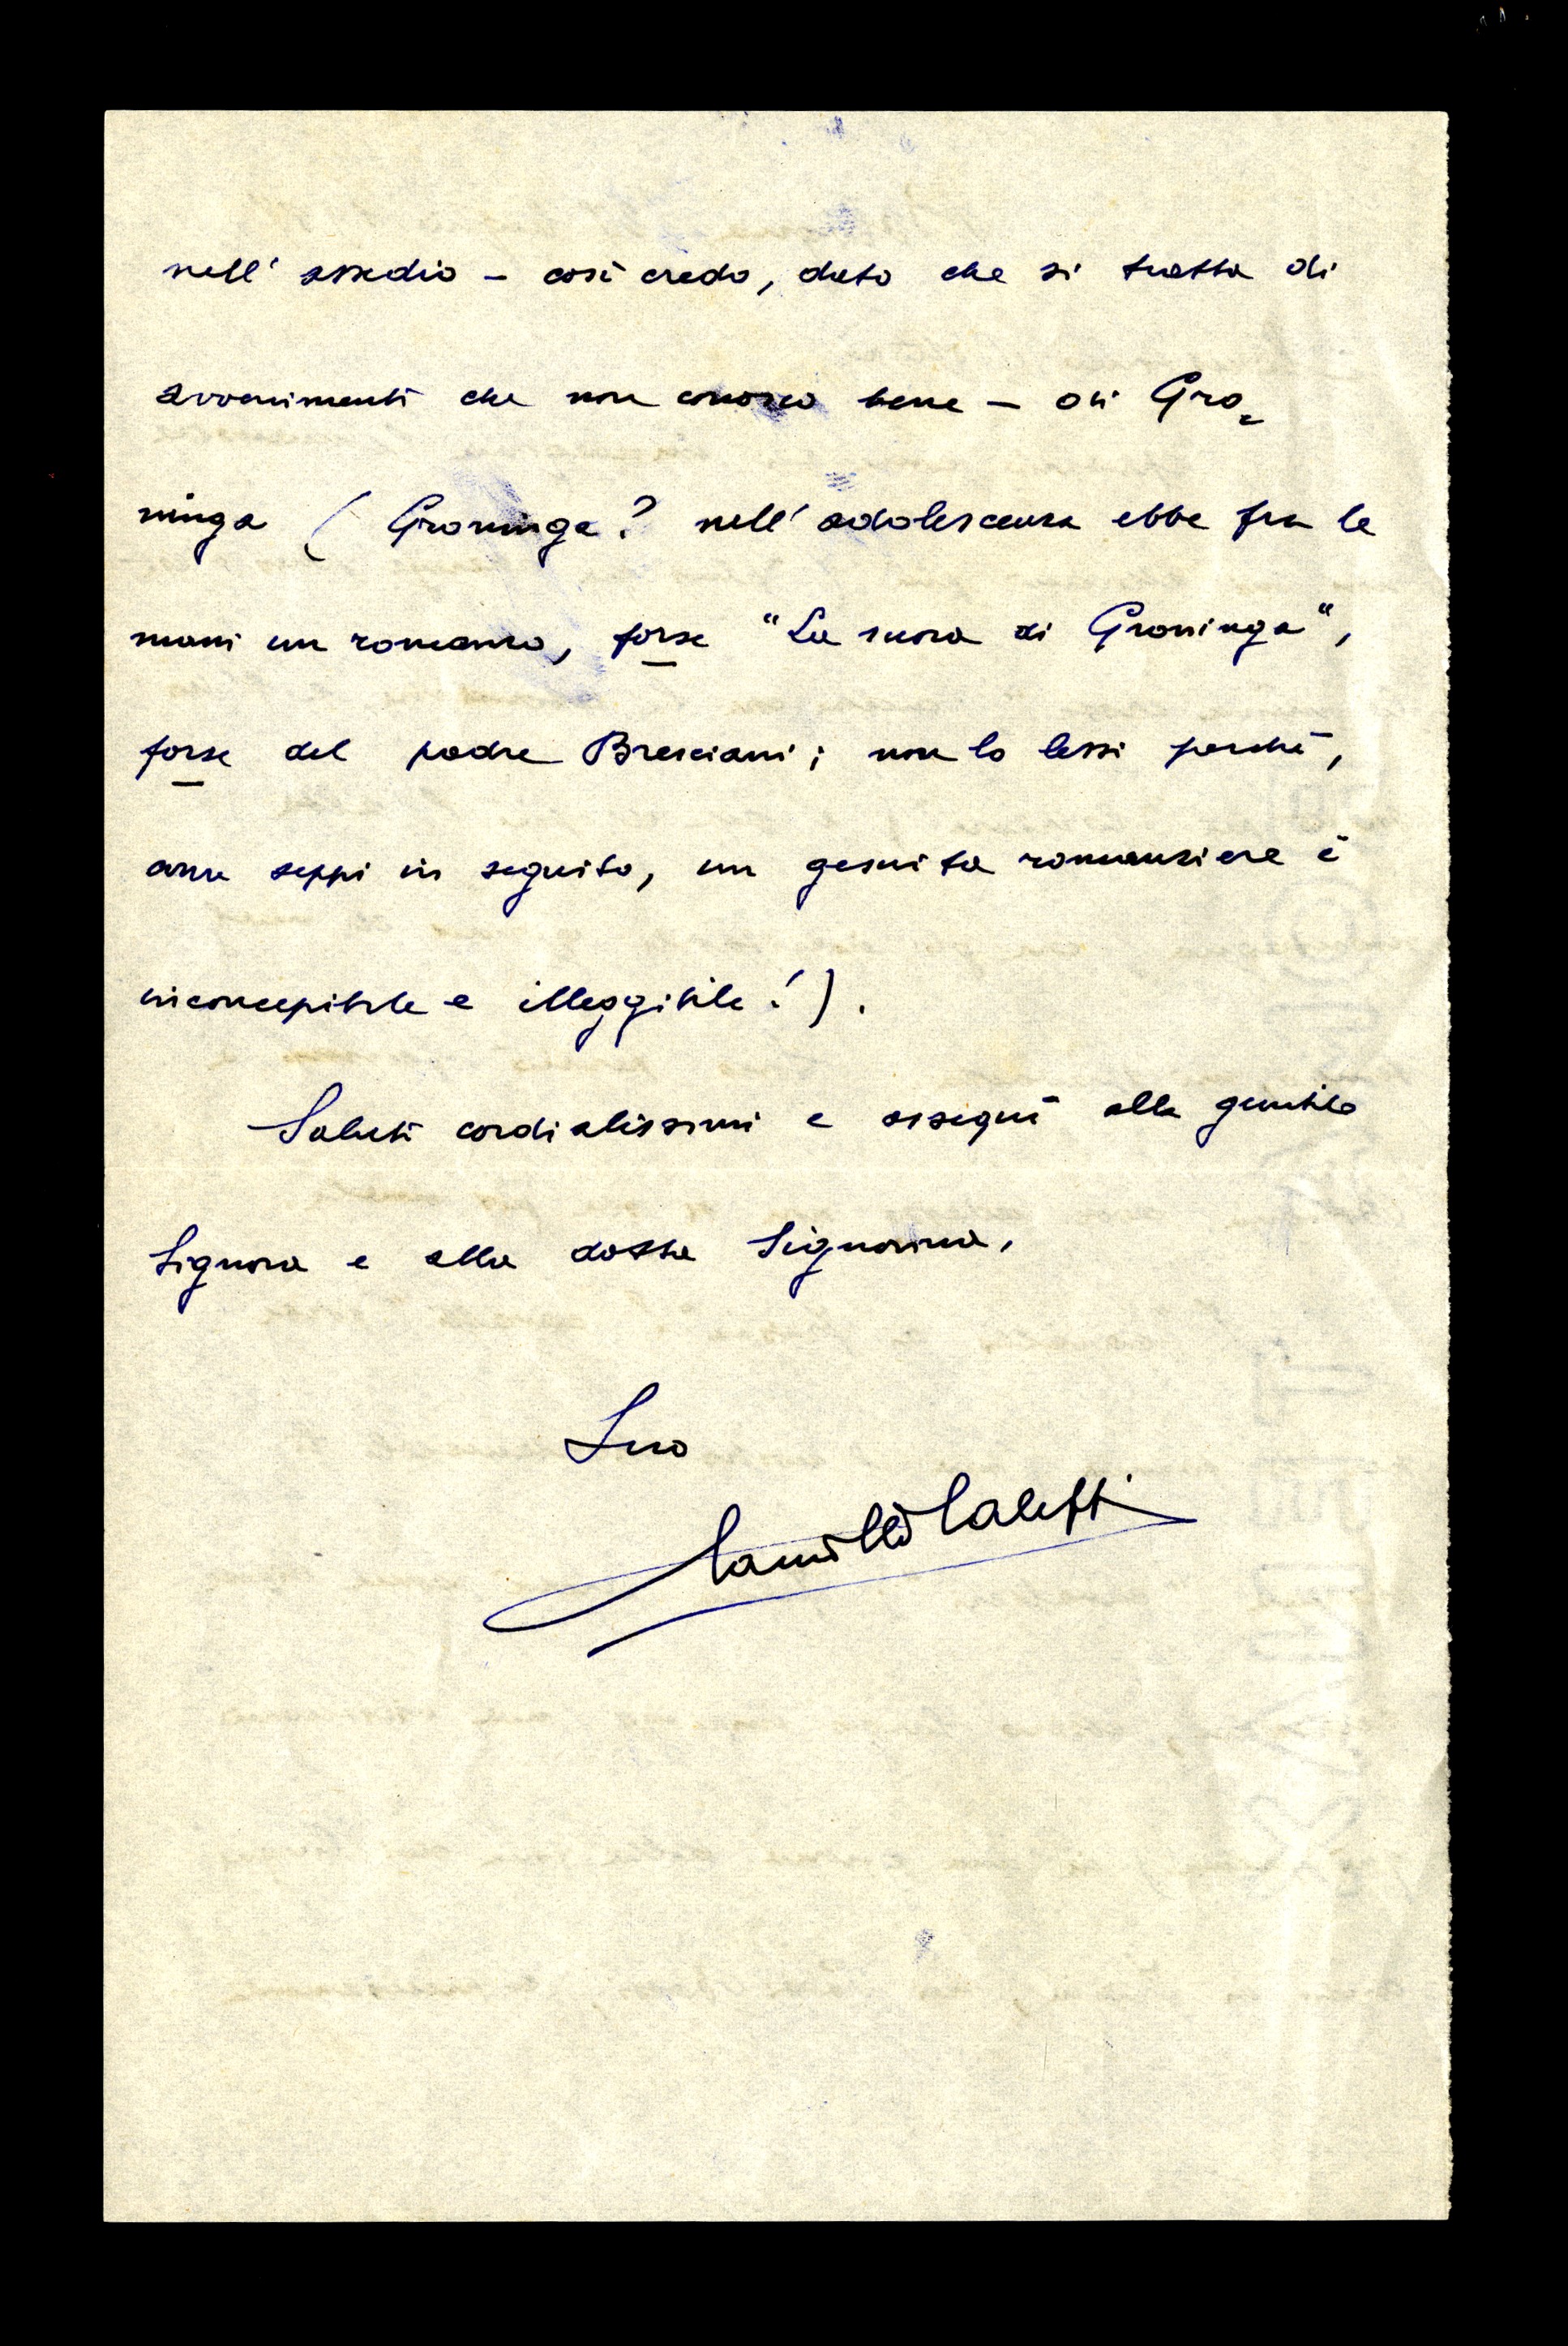 nell' assedio – così credo, dato che si tratta di
avvenimenti che non conosco bene – di Gro=
ninga ( Groninga? nell' adolescenza ebbi fra le
mani un romanzo, forse "La suora di Groninga",
forse del padre Bresciani; non lo lessi perché,
come seppi in seguito, un gesuita romanziere è
inconcepibile e illeggibile!).
Saluti cordialissimi e ossequi alla gentile
Signora e alla dotta Signorina,
Suo
Camillo Caletti